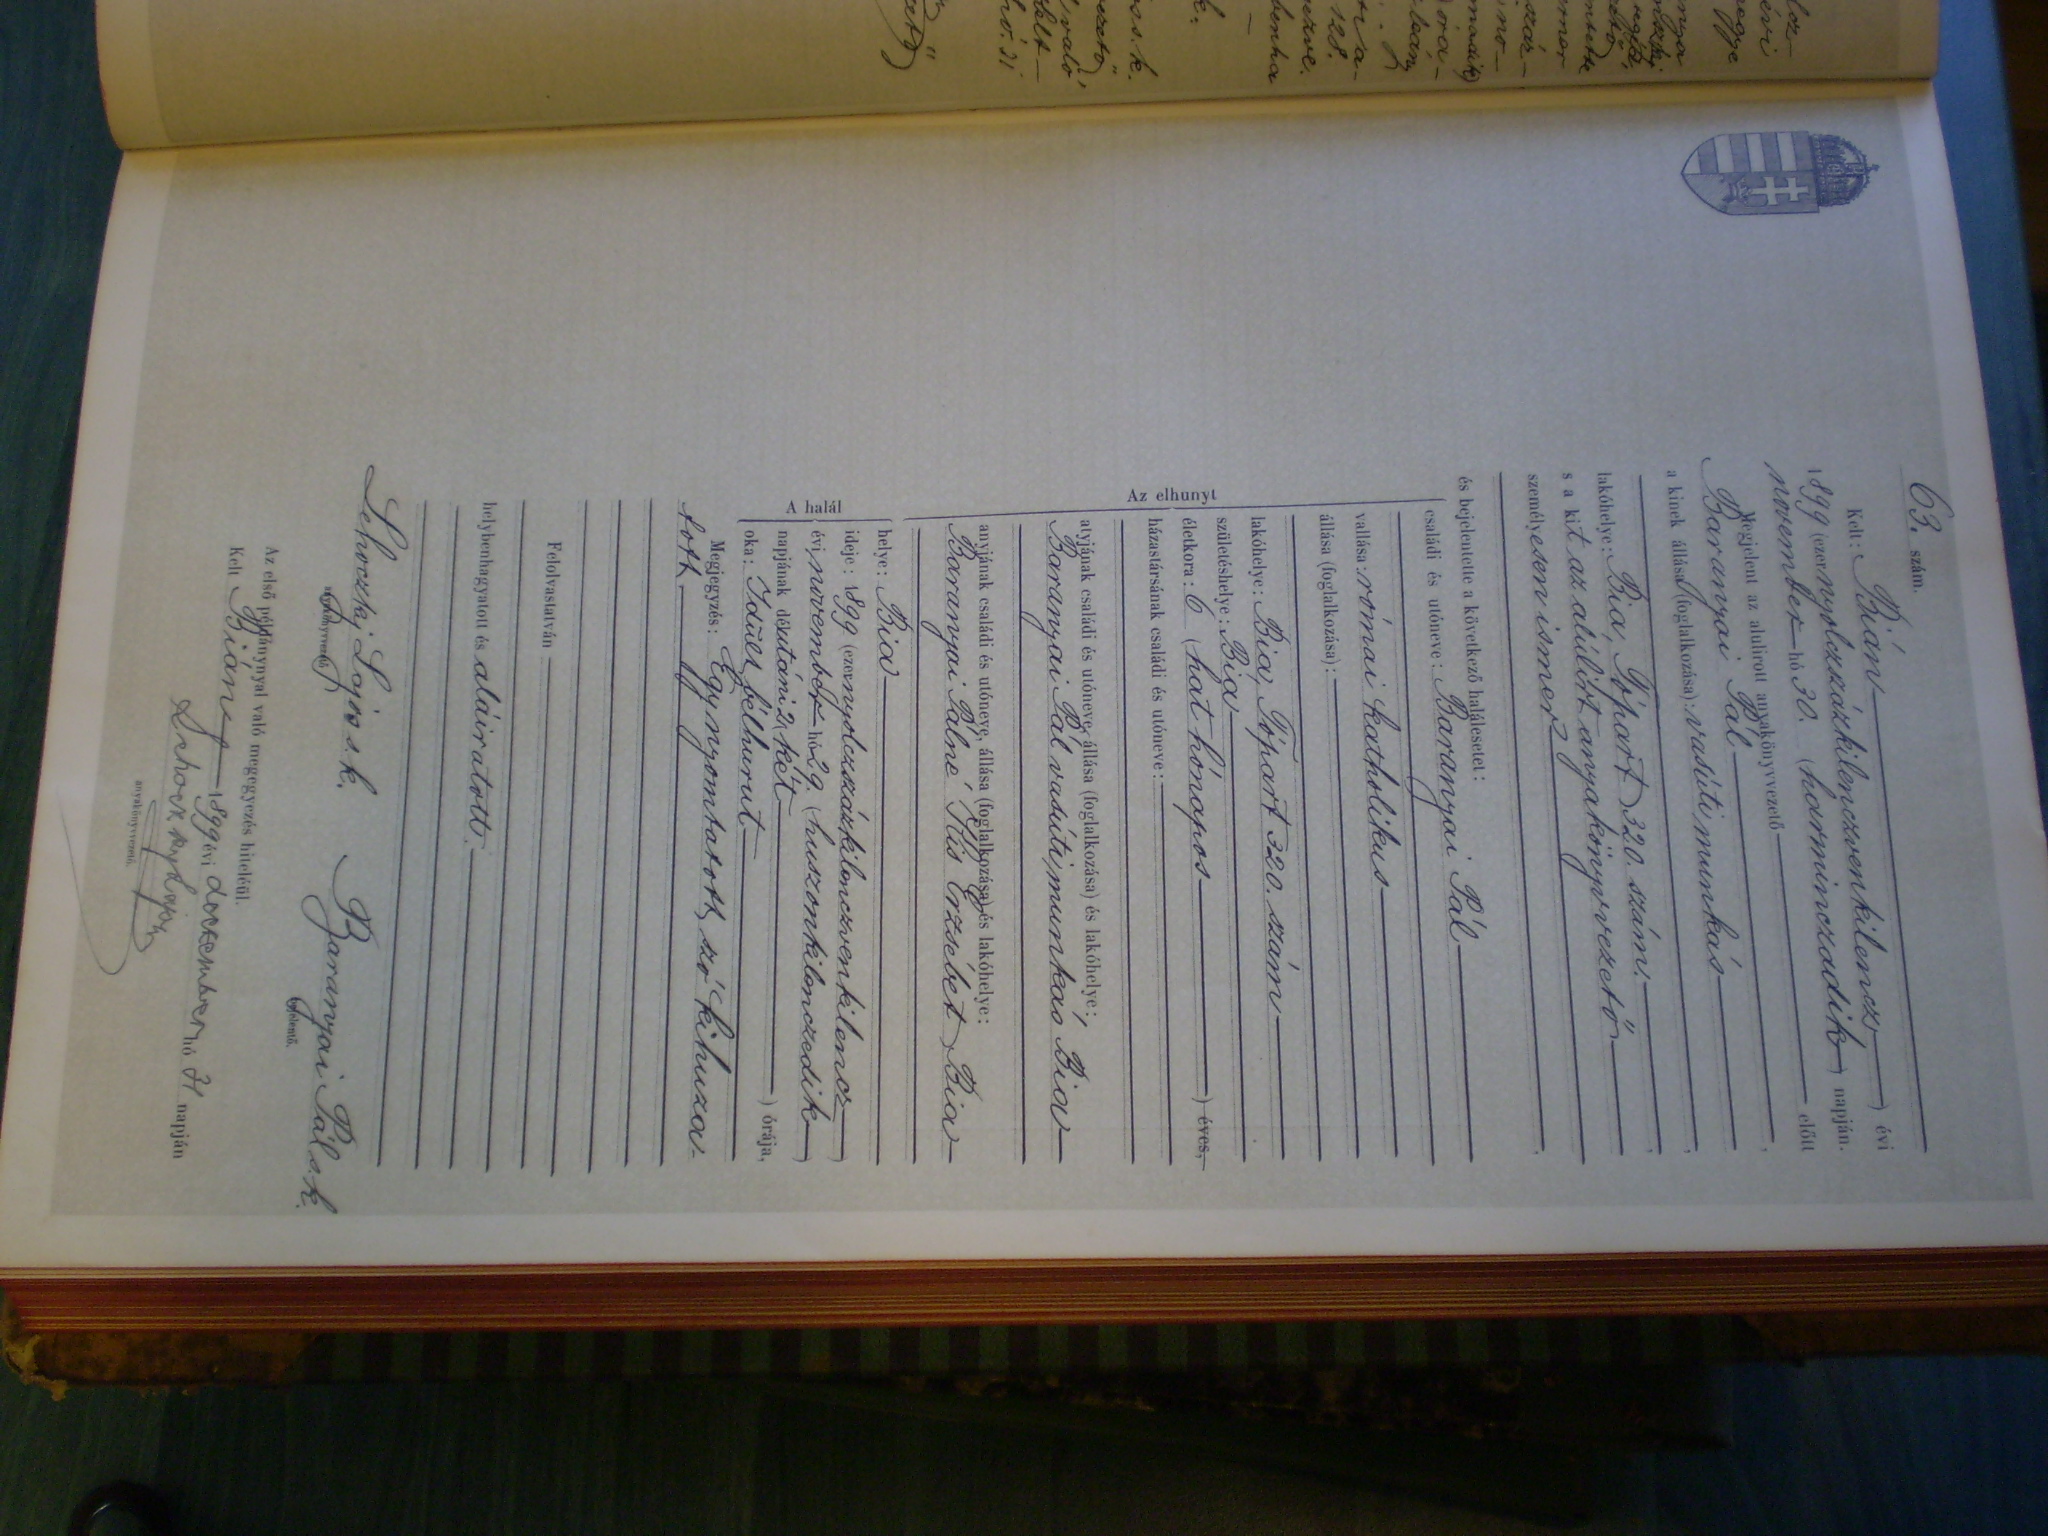 63. szám.
Kelt: Bián 
1899 (ezer nyolczszázkilenczvenkilencz) évi
november hó 30. (harminczadik) napján.
Megjelent az alulirott anyakönyvvezető előtt
Baranyai Pál
a kinek állása (foglalkozása): vasúti munkás
lakóhelye: Bia, Tópart 320. szám.
s a kit az alúlirt anyakönyvvezető
személyesen ismer
és bejelentette a következő halálesetet:
Az elhunyt
családi és utóneve: Baranyai Pál
vallása: római katholikus
állása (foglalkozása):
lakóhelye: Bia, Tópart 320. szám
születéshelye: Bia
életkora: 6 (hat hónapos) éves,
házastársának családi és utóneve:
atyjának családi és utóneve, állása (foglalkozása) és lakóhelye:
Baranyai Pál vasúti munkás Bia
anyjának családi és utóneve, állása (foglalkozása) és lakóhelye:
Baranyai Pálné, Kis Erzsébet, Bia
A halál
helye: Bia
ideje: 1899 (ezer nyolczszázkilenczvenkilencz)
évi november hó 29. (huszonkilenczedik)
napjának délutáni 2 (két) órája,
oka: Idült bélhurut
Megjegyzés: Egy nyomtatott szó kihuza-
tott.
Felolvastatván
helybenhagyatott és aláiratott.
Lehoczki Lajos s. k. Baranyai Pál s. k.
anyakönyvvezető bejelentő.
Az első példánynyal való megegyezés hiteléül.
Kelt Bián 1899 évi deczember hó 31 napján
anyakönyvvezető.